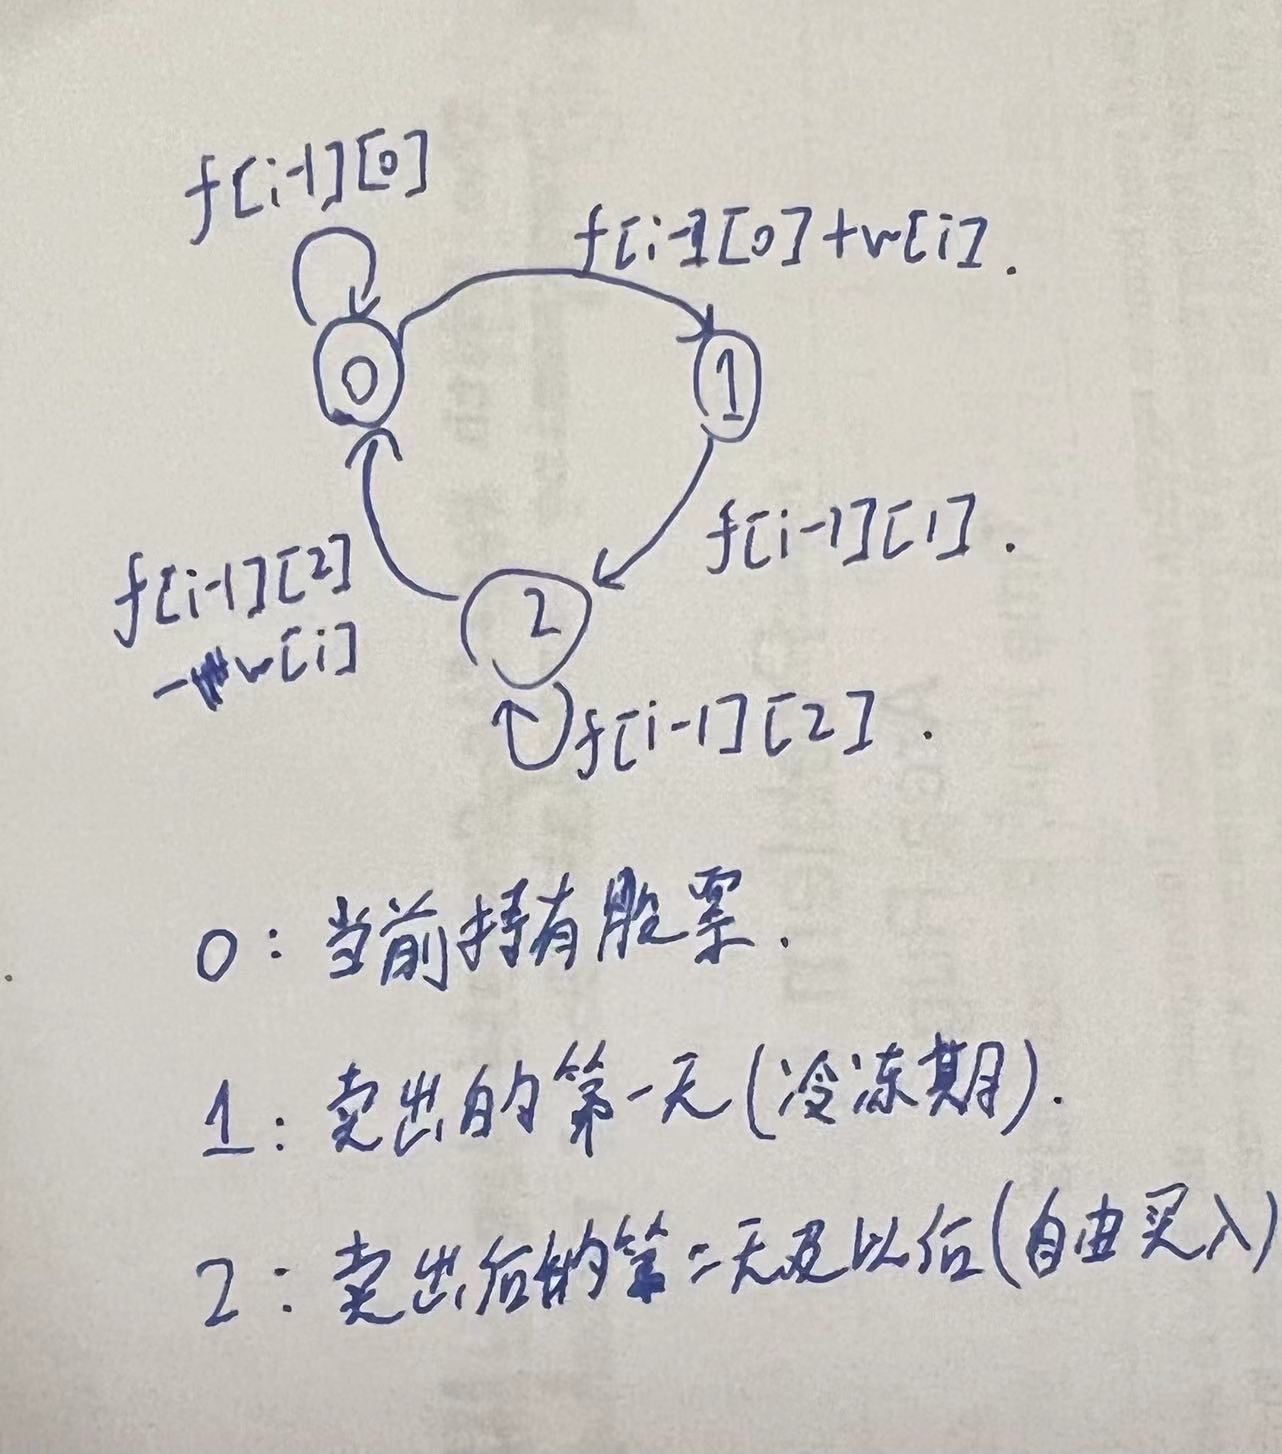 f[i-1][0]
f[i-1][0]+w[i].
0
1
f[i-1][1].
f[i-1][2]
-w[i]
2
f[i-1][2].
0:当前持有股票.
1:卖出的第一天(冷冻期).
2:卖出后的第二天及以后(自由买入)